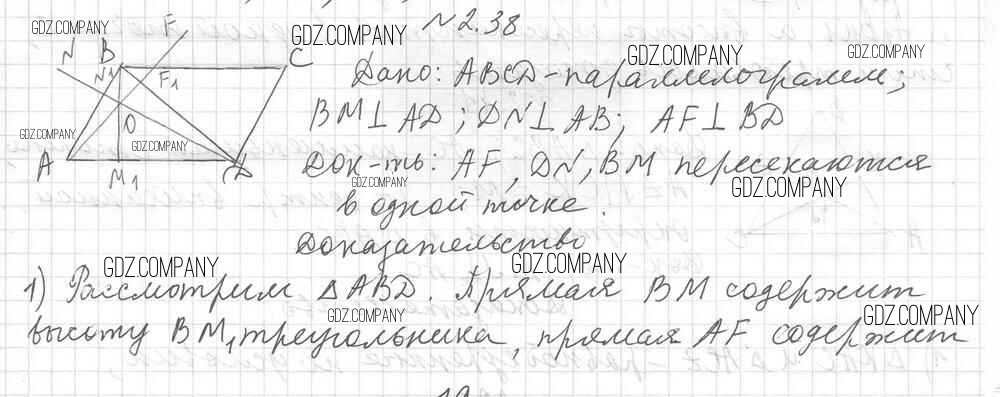 №2.38
Дано: ABCD - параллелограмм;
BM⊥AD; DN⊥AB; AF⊥BD
Док-ть: AF, DN, BM пересекаются
в одной точке.
Доказательство
1) Рассмотрим △ABD. Прямая BM содержит
высоту BM₁ треугольника, прямая AF содержит
N
B
F
C
N1
F1
O
A
M1
D
GDZ.COMPANY
GDZ.COMPANY
GDZ.COMPANY
GDZ.COMPANY
GDZ.COMPANY
GDZ.COMPANY
GDZ.COMPANY
GDZ.COMPANY
GDZ.COMPANY
GDZ.COMPANY
GDZ.COMPANY
GDZ.COMPANY